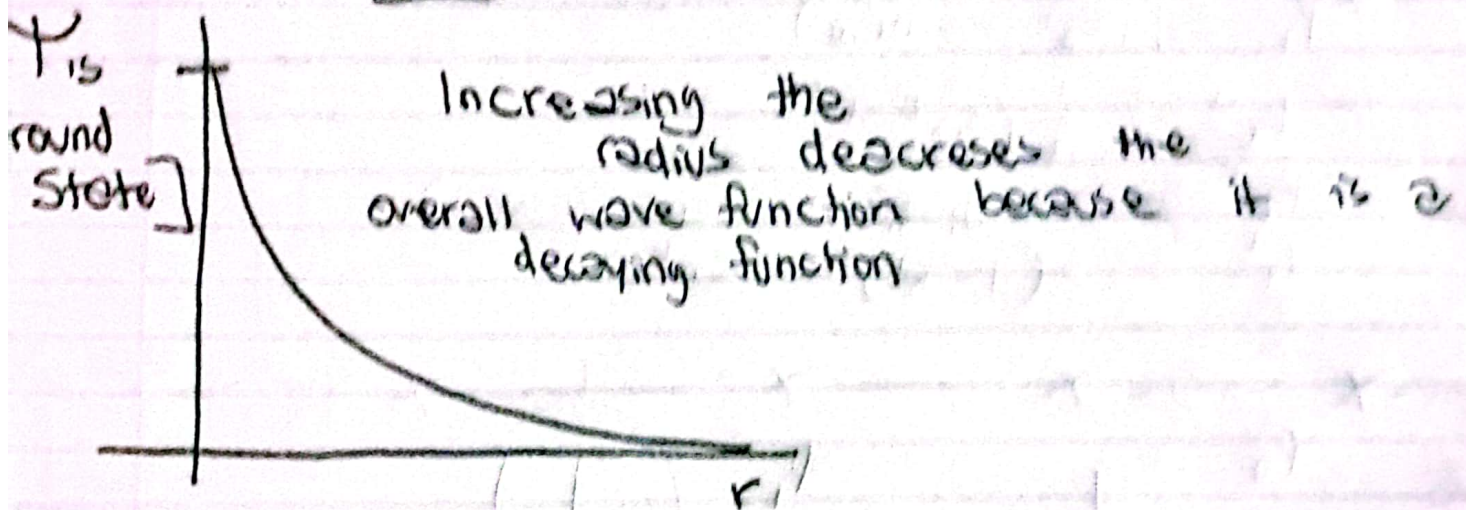 Ψ₁ₛ
round
State]
Increasing the
radius deacreses the
overall wave function because it is a
decaying function
r